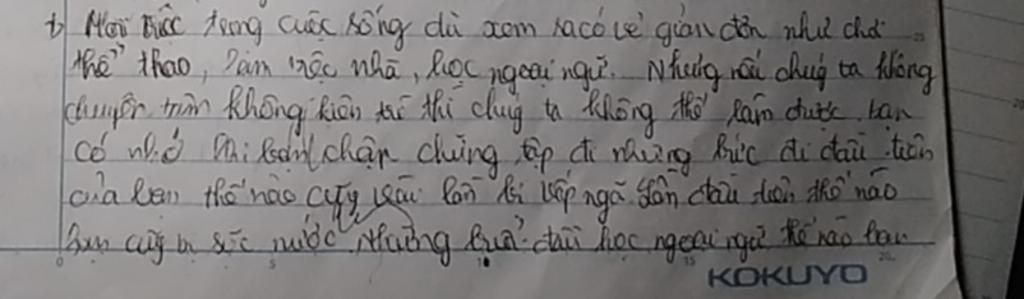 Mọi việc trong cuộc sống dù xem ra có vẻ giản đơn như chơi
thể thao, làm việc nhà, học ngoại ngữ. Nhưng nếu chúng ta không
chuyên tâm không kiên trì thì chúng ta không thể làm được. bạn
có nhớ khi bạn chập chững tập đi những bước đi đầu tiên
của bạn thế nào cũng vài lần bị vấp ngã lần đầu tiên thế nào
bạn cũng bị sặc nước. Những buổi đầu học ngoại ngữ thế nào bạn
KOKUYO